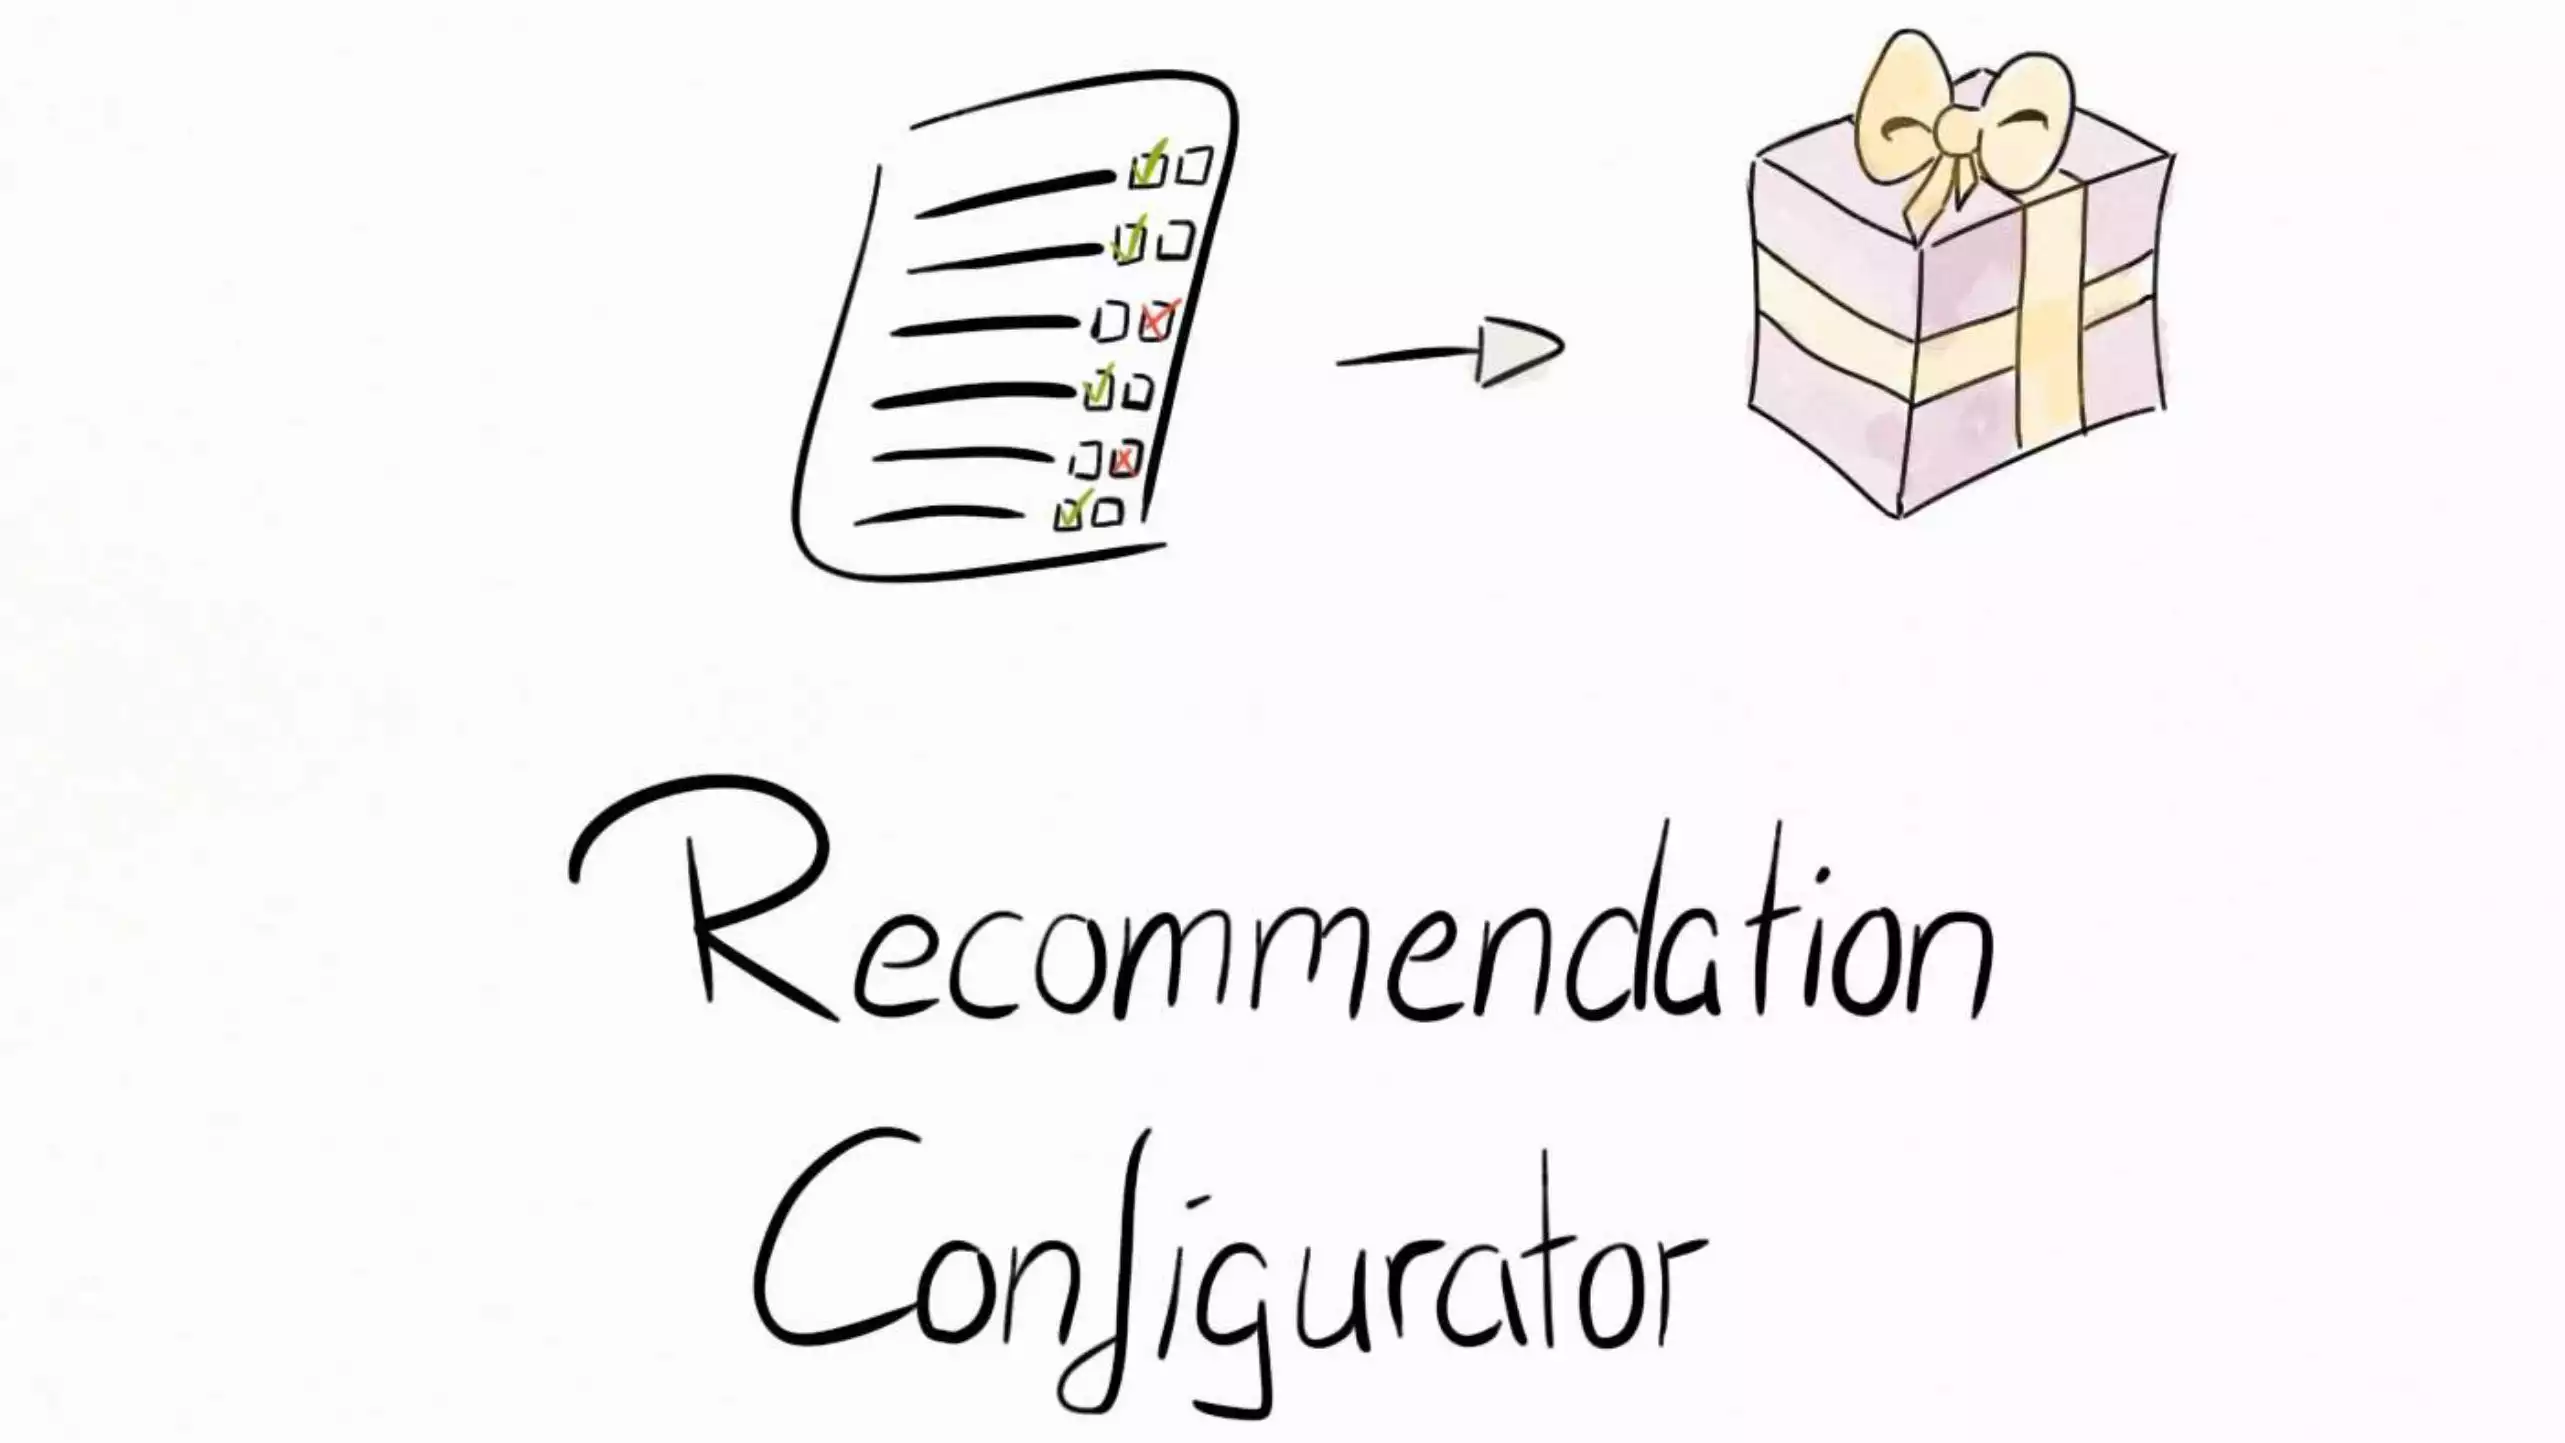 Recommendation
Configurator